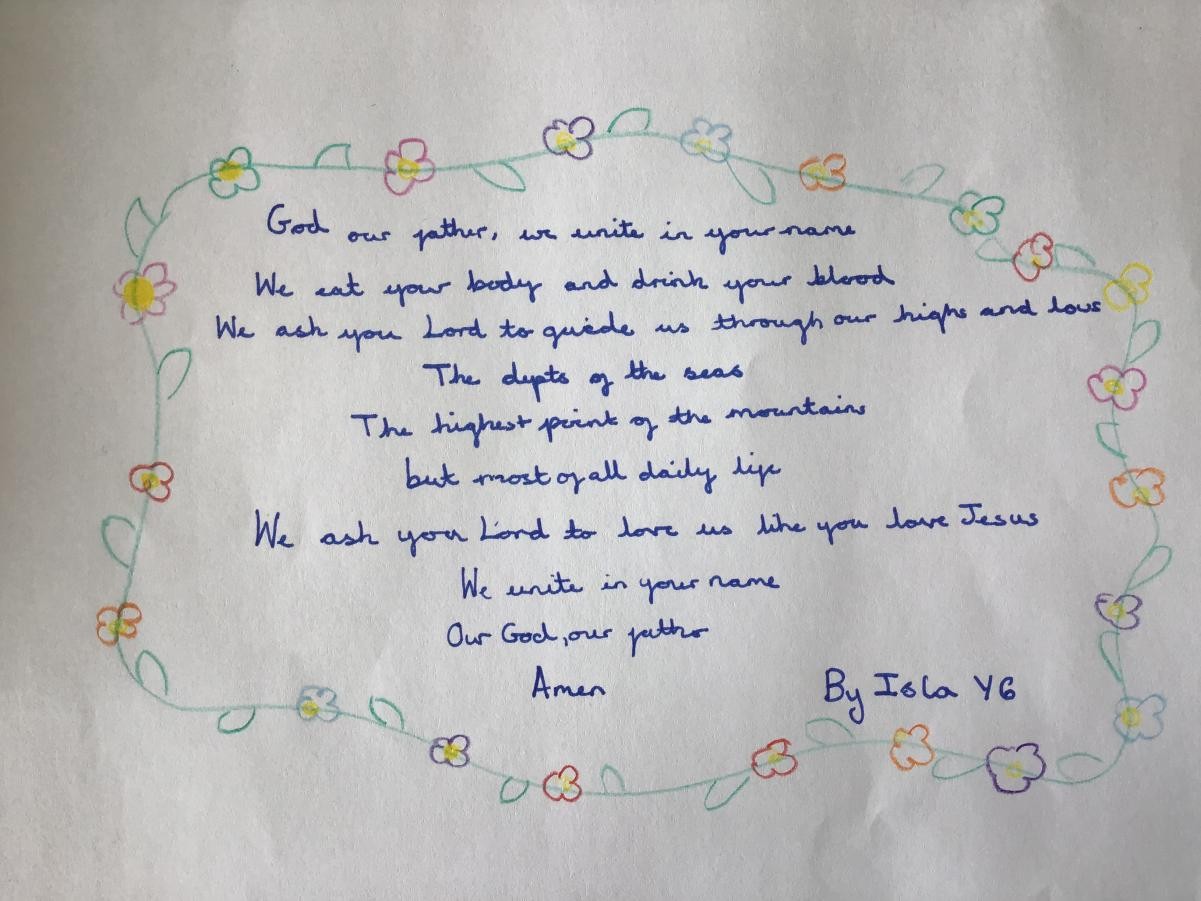 God our father, we unite in your name
We eat your body and drink your blood
We ask you Lord to guide us through our highs and lows
The depts of the seas
The highest point of the mountains
but most of all daily life
We ask you Lord to love us like you love Jesus
We unite in your name
Our God, our father
Amen
By Isla Y6